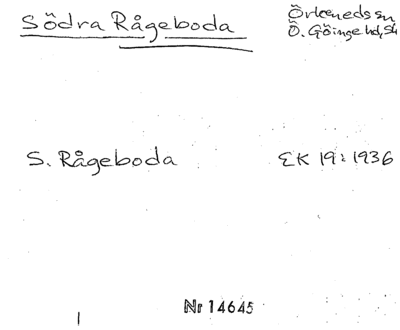 Södra Rågeboda
Örkeneds sn
Ö. Göinge hd, Sk
S. Rågeboda
EK 19: 1936
Nr 14645